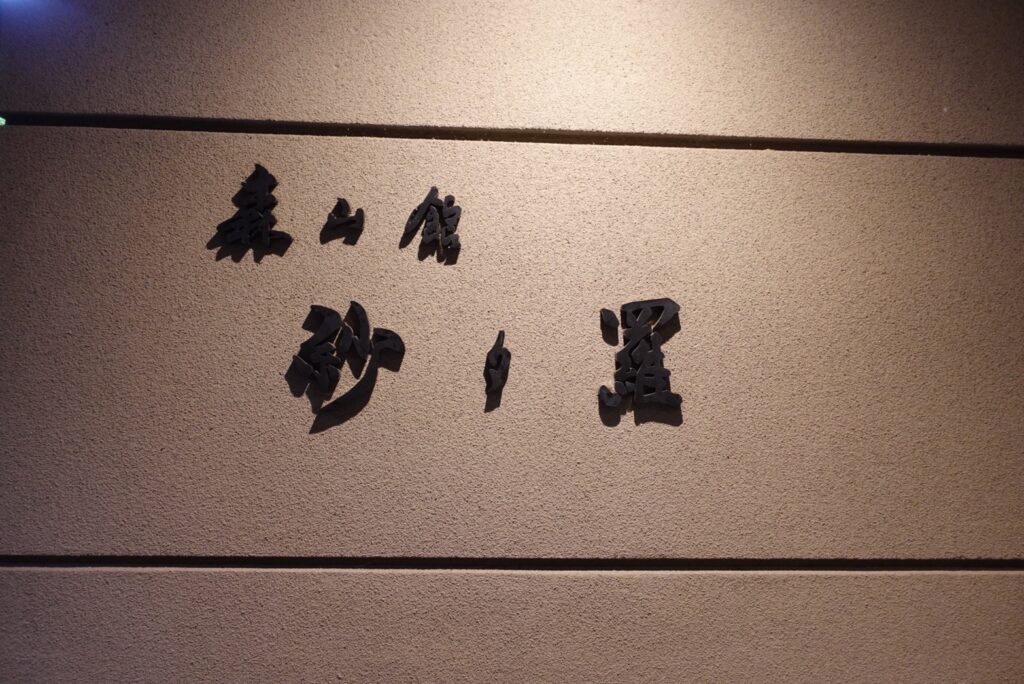 森山館
紗々羅